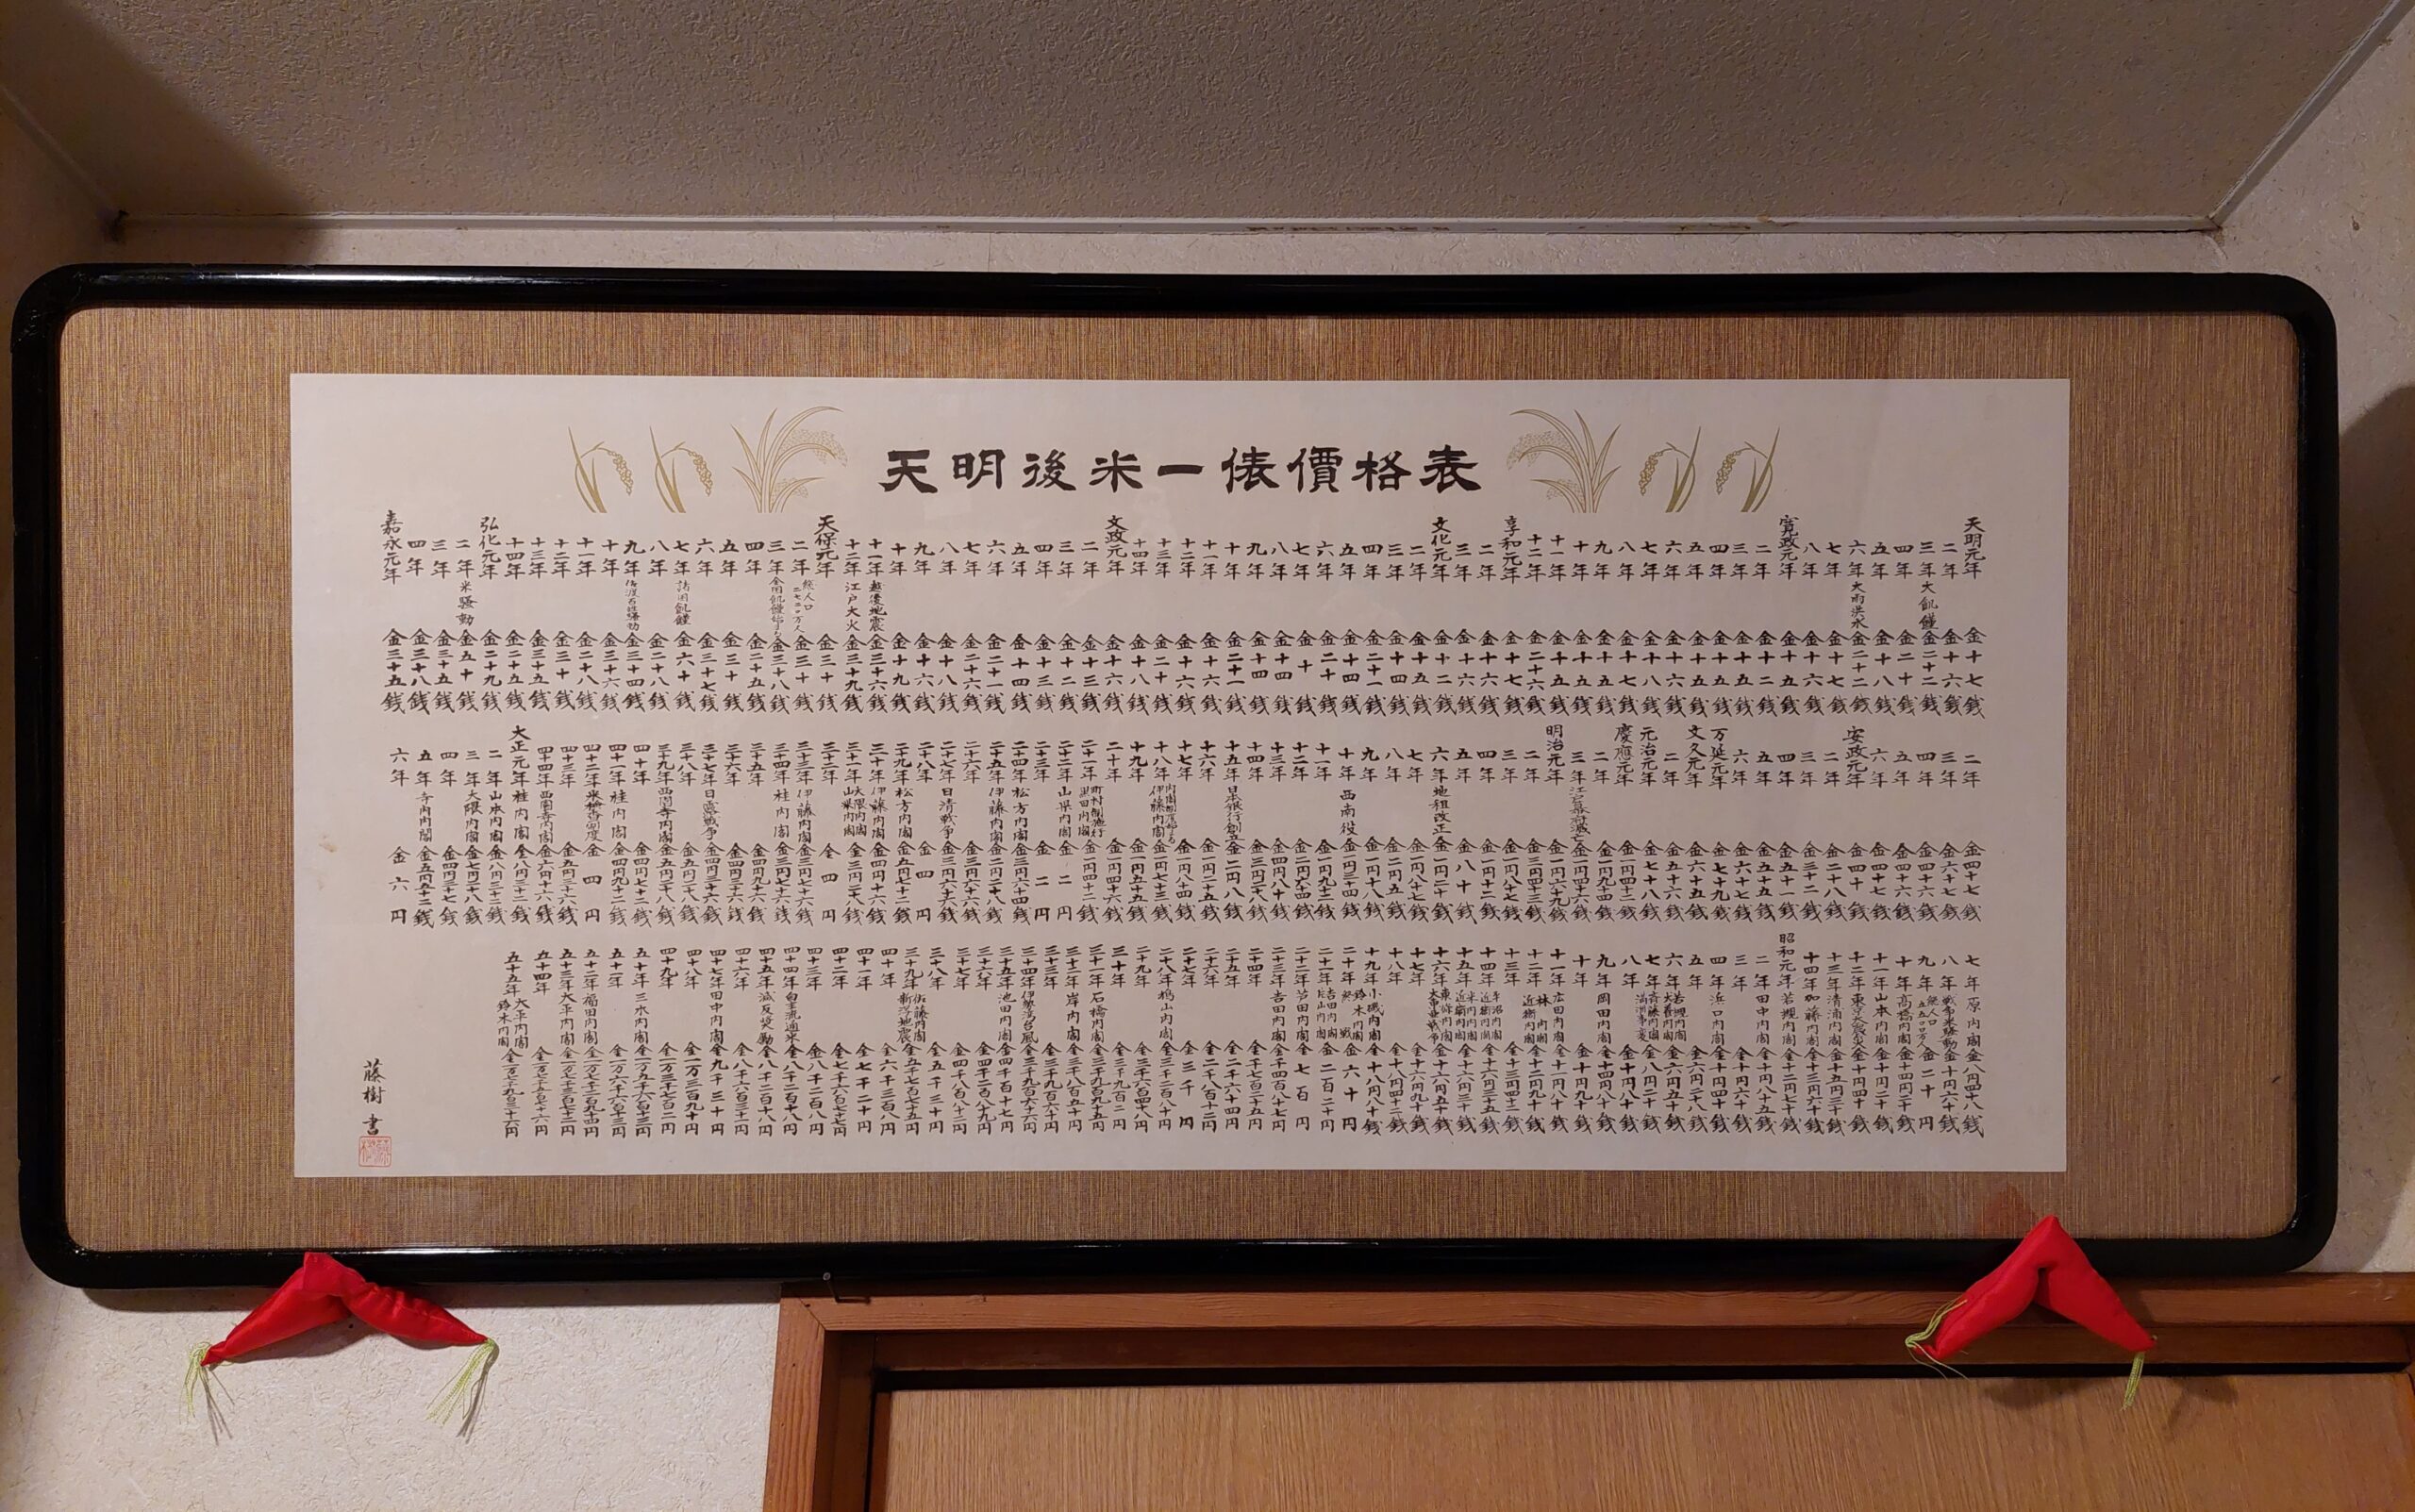 天明後米一俵價格表
天明元年 金十七銭
二年 金十六銭
三年 大飢饉 金二十二銭
四年 金二十銭
五年 金十八銭
六年 大雨洪水 金二十二銭
七年 金十七銭
八年 金十六銭
寛政元年 金十五銭
二年 金十二銭
三年 金十五銭
四年 金十五銭
五年 金十五銭
六年 金十六銭
七年 金十八銭
八年 金十七銭
九年 金十五銭
十年 金十五銭
十一年 金十五銭
十二年 金二十六銭
享和元年 金十七銭
二年 金十六銭
三年 金十六銭
文化元年 金十二銭
二年 金十五銭
三年 金十四銭
四年 金二十一銭
五年 金十四銭
六年 金二十銭
七年 金十銭
八年 金十四銭
九年 金十四銭
十年 金二十一銭
十一年 金十六銭
十二年 金十六銭
十三年 金二十銭
十四年 金十八銭
文政元年 金十六銭
二年 金十三銭
三年 金十二銭
四年 金十三銭
五年 金十四銭
六年 金二十一銭
七年 金二十六銭
八年 金十八銭
九年 金十六銭
十年 金十九銭
十一年 越後地震 金三十六銭
十二年 江戸大火 金三十九銭
天保元年 金三十銭
二年 総人口二七二〇万人 金三十銭
三年 全国飢饉始まる 金三十八銭
四年 金二十五銭
五年 金三十銭
六年 金三十七銭
七年 諸国飢饉 金六十銭
八年 金二十八銭
九年 佐渡百姓騒動 金三十四銭
十年 金三十六銭
十一年 金二十八銭
十二年 金三十銭
十三年 金三十五銭
十四年 金二十五銭
弘化元年 金二十九銭
二年 米騒動 金五十銭
三年 金三十五銭
四年 金三十八銭
嘉永元年 金三十五銭
二年 金四十七銭
三年 金六十七銭
四年 金四十六銭
五年 金四十六銭
六年 金四十七銭
安政元年 金四十銭
二年 金二十八銭
三年 金三十二銭
四年 金五十一銭
五年 金五十五銭
六年 金六十七銭
万延元年 金七十九銭
文久元年 金六十五銭
二年 金五十六銭
元治元年 金七十八銭
慶應元年 金一円四十二銭
二年 金一円九十四銭
三年 江戸幕府滅亡 金一円四十六銭
明治元年 金一円六十九銭
二年 金三円四十三銭
三年 金一円八十七銭
四年 金一円十二銭
五年 金八十銭
六年 地租改正 金一円二十銭
七年 金一円八十七銭
八年 金二円五銭
九年 金一円十八銭
十年 西南役 金一円三十四銭
十一年 金一円九十二銭
十二年 金二円六十四銭
十三年 金四円八十銭
十四年 金三円二十八銭
十五年 日本銀行創立 金二円八銭
十六年 金一円二十五銭
十七年 金一円八十四銭
十八年 内閣制度始まる 伊藤内閣 金一円七十三銭
十九年 金一円五十五銭
二十年 金一円四十六銭
二十一年 町村制施行 黒田内閣 金一円四十二銭
二十二年 山県内閣 金二円
二十三年 金二円
二十四年 松方内閣 金三円六十四銭
二十五年 伊藤内閣 金二円三十八銭
二十六年 金三円六十六銭
二十七年 日清戦争 金三円六十六銭
二十八年 金四円
二十九年 松方内閣 金五円七十二銭
三十年 伊藤内閣 金四円十六銭
三十一年 大隈内閣 山縣内閣 金三円二十八銭
三十二年 金四円
三十三年 伊藤内閣 金三円七十六銭
三十四年 桂内閣 金三円七十六銭
三十五年 金四円九十六銭
三十六年 金四円三十六銭
三十七年 日露戦争 金四円三十六銭
三十八年 金五円二十八銭
三十九年 西園寺内閣 金五円二十八銭
四十年 金四円七十二銭
四十一年 桂内閣 金四円九十二銭
四十二年 米検査制度 金四円
四十三年 金五円三十六銭
四十四年 西園寺内閣 金六円十六銭
大正元年 桂内閣 金八円三十二銭
二年 山本内閣 金八円三十二銭
三年 大隈内閣 金七円二十八銭
四年 金四円三十七銭
五年 寺内内閣 金五円五十二銭
六年 金六円
七年 原内閣 金八円四十八銭
八年 戦争米騒動 金十円六十銭
九年 総人口五五〇〇万人 金二十円
十年 高橋内閣 金十四円二十銭
十一年 山本内閣 金十円二十銭
十二年 東京大震災 金十円四十銭
十三年 清浦内閣 金十五円三十銭
十四年 加藤内閣 金十三円六十銭
昭和元年 若槻内閣 金十二円七十銭
二年 田中内閣 金十円八十五銭
三年 金十円六十銭
四年 浜口内閣 金十円四十銭
五年 金六円二十八銭
六年 若槻内閣 犬養内閣 金六円五十銭
七年 斉藤内閣 満洲事変 金八円二十銭
八年 金十円八十銭
九年 岡田内閣 金十四円八銭
十年 金十円九十銭
十一年 広田内閣 金十一円八十銭
十二年 林内閣 近衛内閣 金十二円九十銭
十三年 金十三円四十二銭
十四年 平沼内閣 金十六円三十五銭
十五年 米内内閣 近衛内閣 金十六円三十銭
十六年 東條内閣 大東亜戦争 金十六円五十銭
十七年 金十六円九十銭
十八年 金十八円四十二銭
十九年 小磯内閣 金十八円八十銭
二十年 鈴木内閣 終戦 金六十円
二十一年 吉田内閣 片山内閣 金二百二十円
二十二年 芦田内閣 金七百円
二十三年 吉田内閣 金千四百八十七円
二十四年 金千七百二十五円
二十五年 金二千六十四円
二十六年 金二千八百十二円
二十七年 金三千円
二十八年 鳩山内閣 金三千二百八十円
二十九年 金三千六百四十八円
三十年 金三千九百二円
三十一年 石橋内閣 金三千九百九十五円
三十二年 岸内閣 金三千八百五十円
三十三年 金三千九百六十円
三十四年 伊勢湾台風 金三千九百六十六円
三十五年 池田内閣 金四千百十七円
三十六年 金四千二百八十九円
三十七年 金四千八百八十二円
三十八年 金五千三十円
三十九年 佐藤内閣 新潟地震 金五千七百七十五円
四十年 金六千三百八円
四十一年 金七千二十円
四十二年 金七千六百七十七円
四十三年 金八千二百八円
四十四年 自主流通米 金八千二百十八円
四十五年 減反奨励 金八千二百十八円
四十六年 金八千六百三十二円
四十七年 田中内閣 金九千三十円
四十八年 金一万三百九十円
四十九年 金一万三千七百二円
五十年 三木内閣 金一万五千六百十三円
五十一年 金一万六千六百十三円
五十二年 福田内閣 金一万七千二百九十四円
五十三年 大平内閣 金一万七千三百十二円
五十四年 金一万七千三百七十六円
五十五年 大平内閣 鈴木内閣 金一万七千五百三十六円
藤樹書